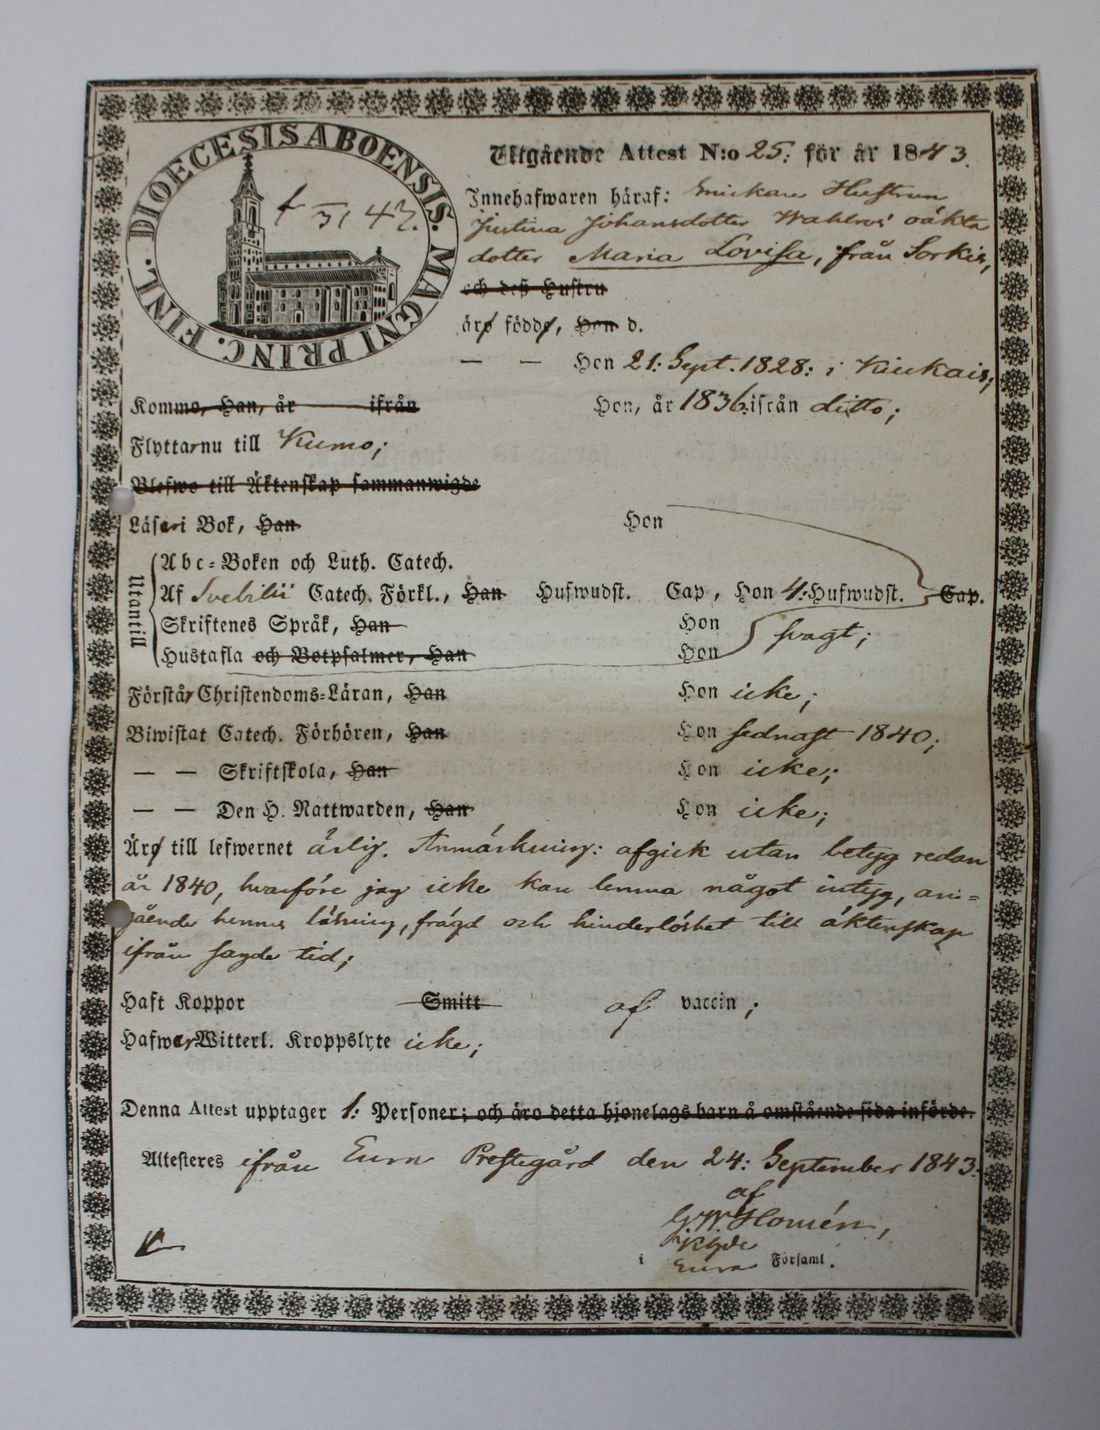 DIOECESIS ABOENSIS. MAGNI PRINC. FINL.
Utgående Attest N:o 25. för år 1843.
Innehafwaren häraf: Enickan Hustrun
Justina Johansdotter Wahlros oäkta
dotter Maria Lovisa, från Sorkis,
och deß Hustru
äro födde, Hon d.
— — Hon 21: Sept. 1828: i Kiukais;
Kommo, Han, år ifrån Hon, år 1836. ifrån ditto;
Flyttar nu till Kumo;
Blefwo till Äktenskap sammanwigde
Läser i Bok, Han Hon
Utantill
Abc-Boken och Luth. Catech.
Af Svebilii Catech. Förkl., Han Hufwudst. Cap, Hon 4: Hufwudst. Cap.
Skriftenes Språk, Han Hon
svagt;
Hustafla och Botpsalmer, Han Hon
Förstår Christendoms-Läran, Han Hon icke;
Biwistat Catech. Förhören, Han Hon sednast 1840;
— — Skriftskola, Han Hon icke;
— — Den H. Nattwarden, Han Hon icke;
Är till lefwernet ärlig. Anmärkning: afgick utan betyg redan
år 1840, hvarföre jag icke kan lemna något intyg, an=
gående hennes läsning, frägd och hinderlöshet till äktenskap
ifrån sagde tid;
Haft Koppor Smitt af vaccin;
Hafwer Witterl. Kroppslyte icke;
Denna Attest upptager 1: Personer; och äro detta hjonelags barn å omstående sida införde.
Attesteres ifrån Eura Prestegård den 24: September 1843:
af
G. W. Homén,
i Eura Församl.